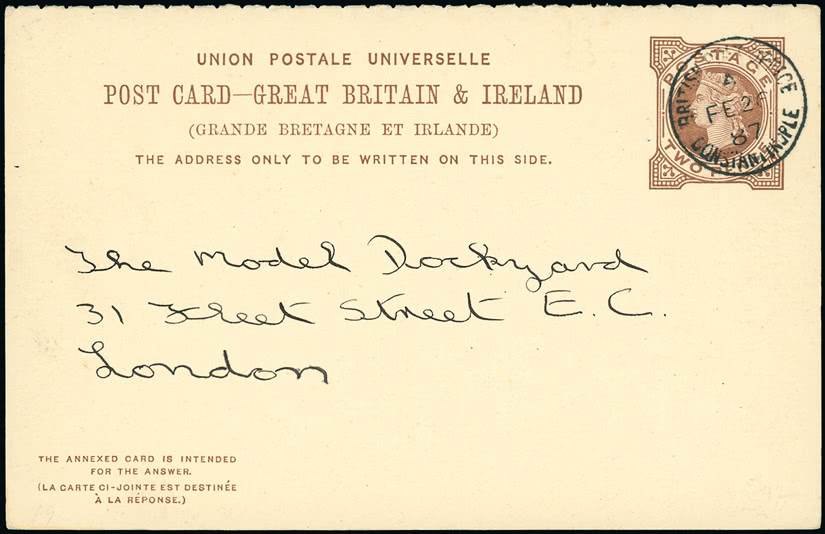 UNION POSTALE UNIVERSELLE
POST CARD—GREAT BRITAIN & IRELAND
(GRANDE BRETAGNE ET IRLANDE)
THE ADDRESS ONLY TO BE WRITTEN ON THIS SIDE.
POSTAGE
TWO
BRITISH
FE 26
87
CONSTANTINOPLE
The Model Dockyard
31 Fleet Street E.C.
London
THE ANNEXED CARD IS INTENDED
FOR THE ANSWER.
(LA CARTE CI-JOINTE EST DESTINÉE
À LA RÉPONSE.)